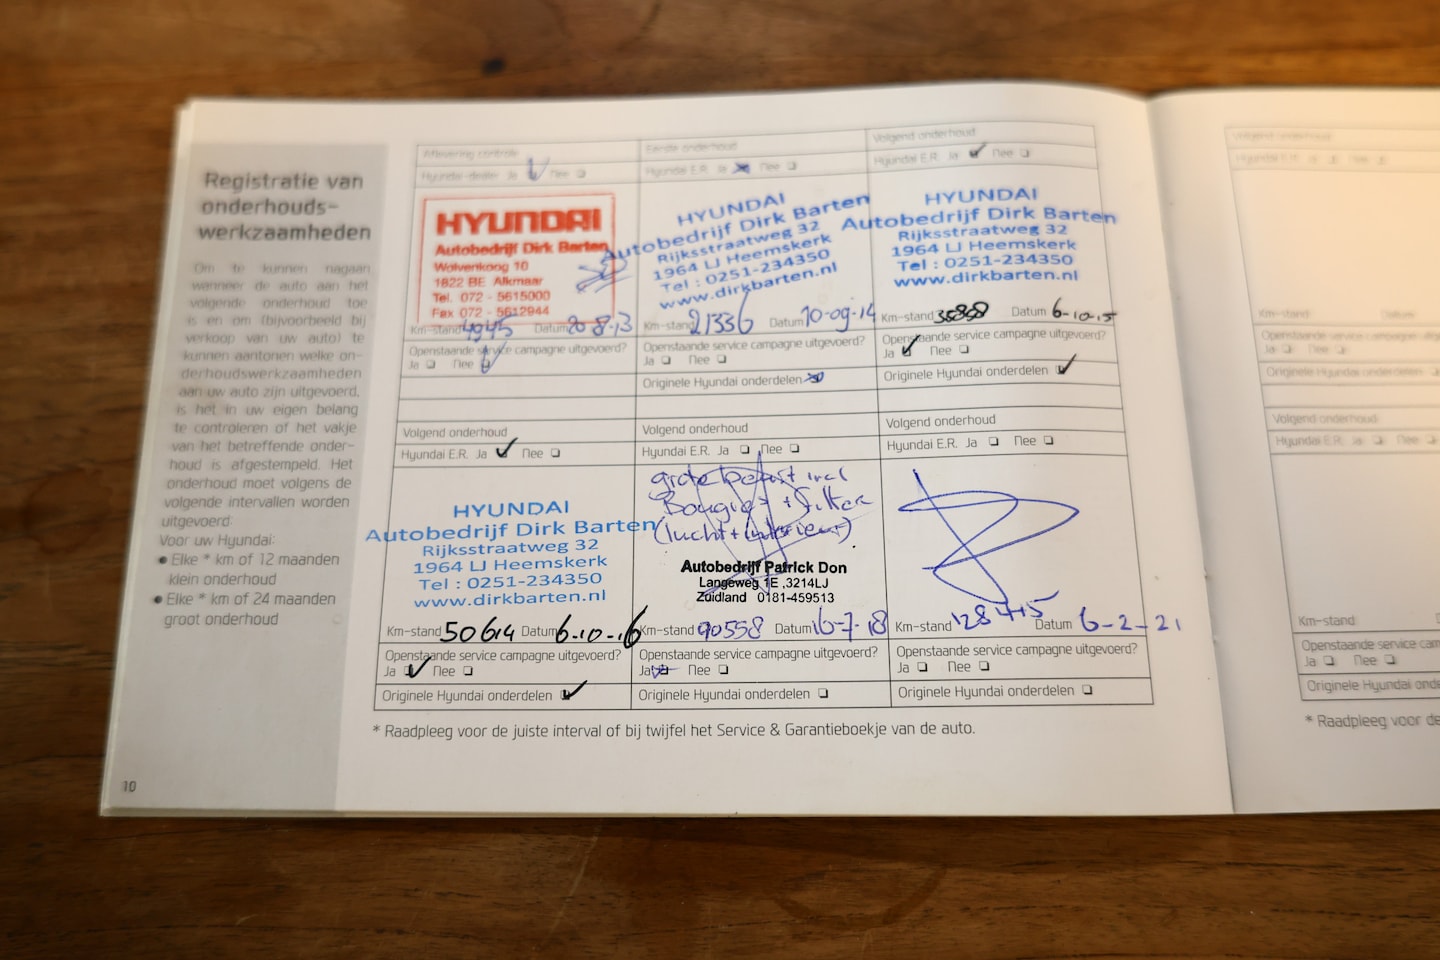 Registratie van
onderhouds-
werkzaamheden
Om te kunnen nagaan
wanneer de auto aan het
volgende onderhoud toe
is en om (bijvoorbeeld bij
verkoop van uw auto) te
kunnen aantonen welke on-
derhoudswerkzaamheden
aan uw auto zijn uitgevoerd,
is het in uw eigen belang
te controleren of het vakje
van het betreffende onder-
houd is afgestempeld. Het
onderhoud moet volgens de
volgende intervallen worden
uitgevoerd:
Voor uw Hyundai:
Elke * km of 12 maanden
klein onderhoud
Elke * km of 24 maanden
groot onderhoud
10
Aflevering controle
Hyundai-dealer Ja Nee
HYUNDAI
Autobedrijf Dirk Barten
Wolvenkoog 10
1822 BE Alkmaar
Tel. 072 - 5615000
Fax 072 - 5612944
Km-stand 4945 Datum 20 8-13
Openstaande service campagne uitgevoerd?
Ja Nee
Eerste onderhoud
Hyundai E.R. Ja Nee
HYUNDAI
Autobedrijf Dirk Barten
Rijksstraatweg 32
1964 LJ Heemskerk
Tel : 0251-234350
www.dirkbarten.nl
Km-stand 21336 Datum 10-09-14
Openstaande service campagne uitgevoerd?
Ja Nee
Originele Hyundai onderdelen
Volgend onderhoud
Hyundai E.R. Ja Nee
HYUNDAI
Autobedrijf Dirk Barten
Rijksstraatweg 32
1964 LJ Heemskerk
Tel : 0251-234350
www.dirkbarten.nl
Km-stand Datum 6-10-15
Openstaande service campagne uitgevoerd?
Ja Nee
Originele Hyundai onderdelen
Volgend onderhoud
Hyundai E.R. Ja Nee
HYUNDAI
Autobedrijf Dirk Barten
Rijksstraatweg 32
1964 LJ Heemskerk
Tel : 0251-234350
www.dirkbarten.nl
Km-stand 50614 Datum 6-10-16
Openstaande service campagne uitgevoerd?
Ja Nee
Originele Hyundai onderdelen
Volgend onderhoud
Hyundai E.R. Ja Nee
grote beurt incl
Bougies + Filter
(lucht + interieur)
Autobedrijf Patrick Don
Langeweg 1E ,3214LJ
Zuidland 0181-459513
Km-stand 90558 Datum 16-7-18
Openstaande service campagne uitgevoerd?
Ja Nee
Originele Hyundai onderdelen
Volgend onderhoud
Hyundai E.R. Ja Nee
Km-stand 128415 Datum 6-2-21
Openstaande service campagne uitgevoerd?
Ja Nee
Originele Hyundai onderdelen
* Raadpleeg voor de juiste interval of bij twijfel het Service & Garantieboekje van de auto.
Volgend onderhoud
Hyundai E.R. Ja Nee
Km-stand Datum
Openstaande service campagne
Ja Nee
Originele Hyundai onderdelen
Volgend onderhoud
Hyundai E.R. Ja Nee
Km-stand
Openstaande service cam
Ja Nee
Originele Hyundai onderdelen
* Raadpleeg voor de